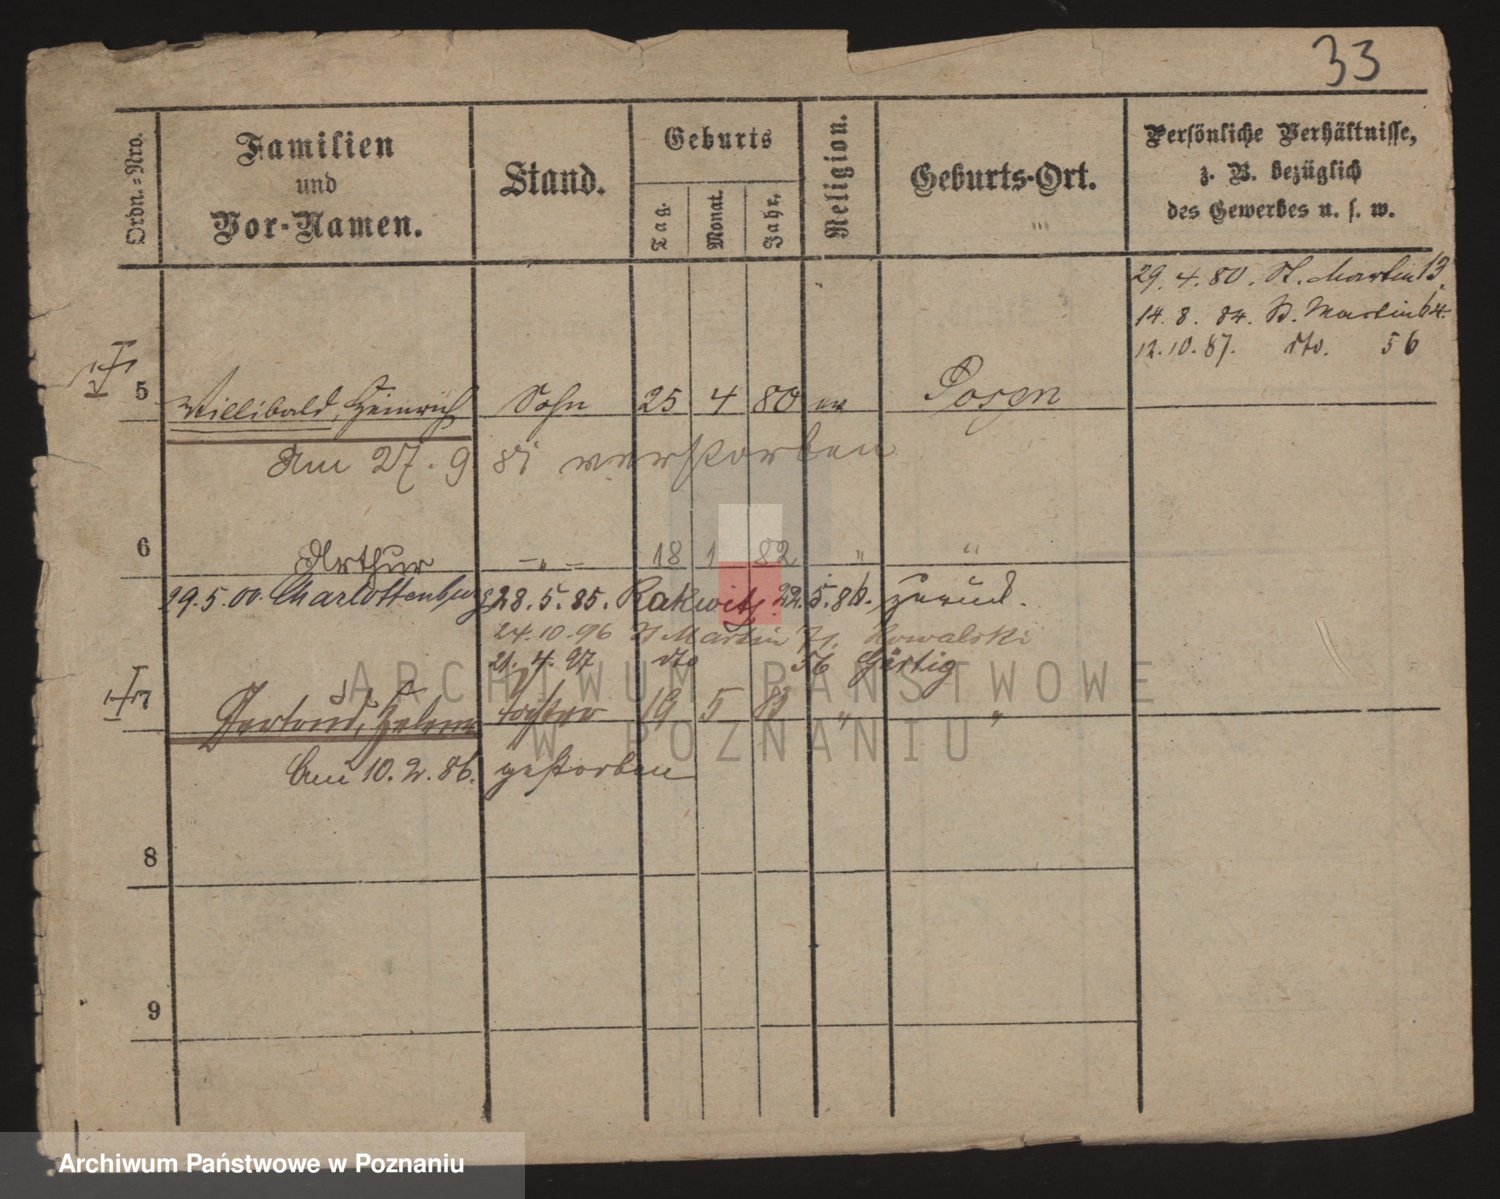 33
Ordn.-Nro.
Familien
und
Vor-Namen.
Stand.
Geburts
Tag.
Monat.
Jahr.
Religion.
Geburts-Ort.
Persönliche Verhältnisse,
z. B. bezüglich
des Gewerbes u. s. w.
29. 4. 80. St. Martin 13
14. 8. 84. St. Martin 64.
12. 10. 87. dto. 56
5 Willibald, Heinrich Sohn 25 4 80 ev Posen
Am 27. 9 81 verstorben
6 Arthur -„- 18 1 82 " "
29.5.00. Charlottenburg 28. 5. 85. Rakwitz 22. 5. 86. zurück.
24.10.96 St Martin 71. Kowalski
21. 4. 97 dto 56 Härtig
7 Gertrud, Helene Tochter 19 5 83 " "
Am 10. 2. 86. gestorben
8
9
ARCHIWUM PAŃSTWOWE
W POZNANIU
Archiwum Państwowe w Poznaniu